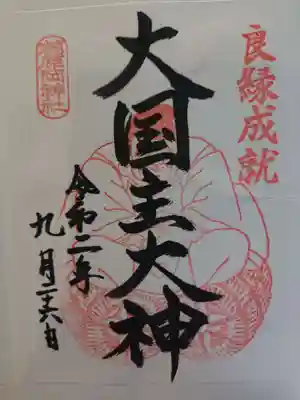 良縁成就
大国主大神
令和二年
九月二十六日